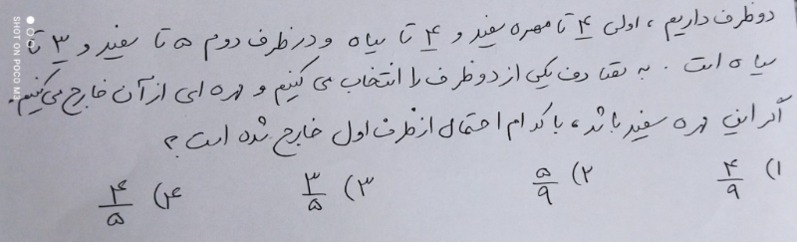 دو ظرف داریم، اولی ۴ تا مهره سفید و ۴ تا سیاه و در ظرف دوم ۵ تا سفید و ۳ تا
سیاه است. به تصادف یکی از دو ظرف را انتخاب می کنیم و مهره ای از آن خارج می کنیم.
اگر این مهره سفید باشد، با کدام احتمال از ظرف اول خارج شده است؟
۱) ۴/۹ ۲) ۵/۹ ۳) ۳/۵ ۴) ۴/۵
SHOT ON POCO M3